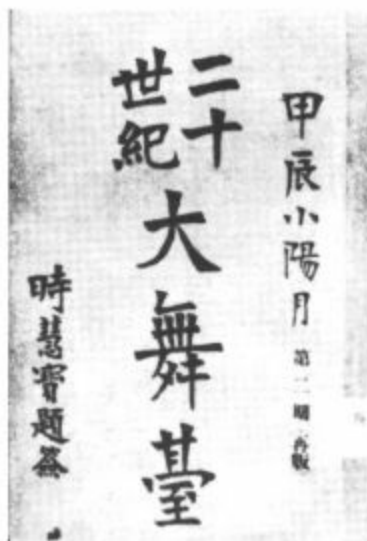 甲辰小陽月 第二期 再版
二十
世紀
大舞臺
時慧寶題簽